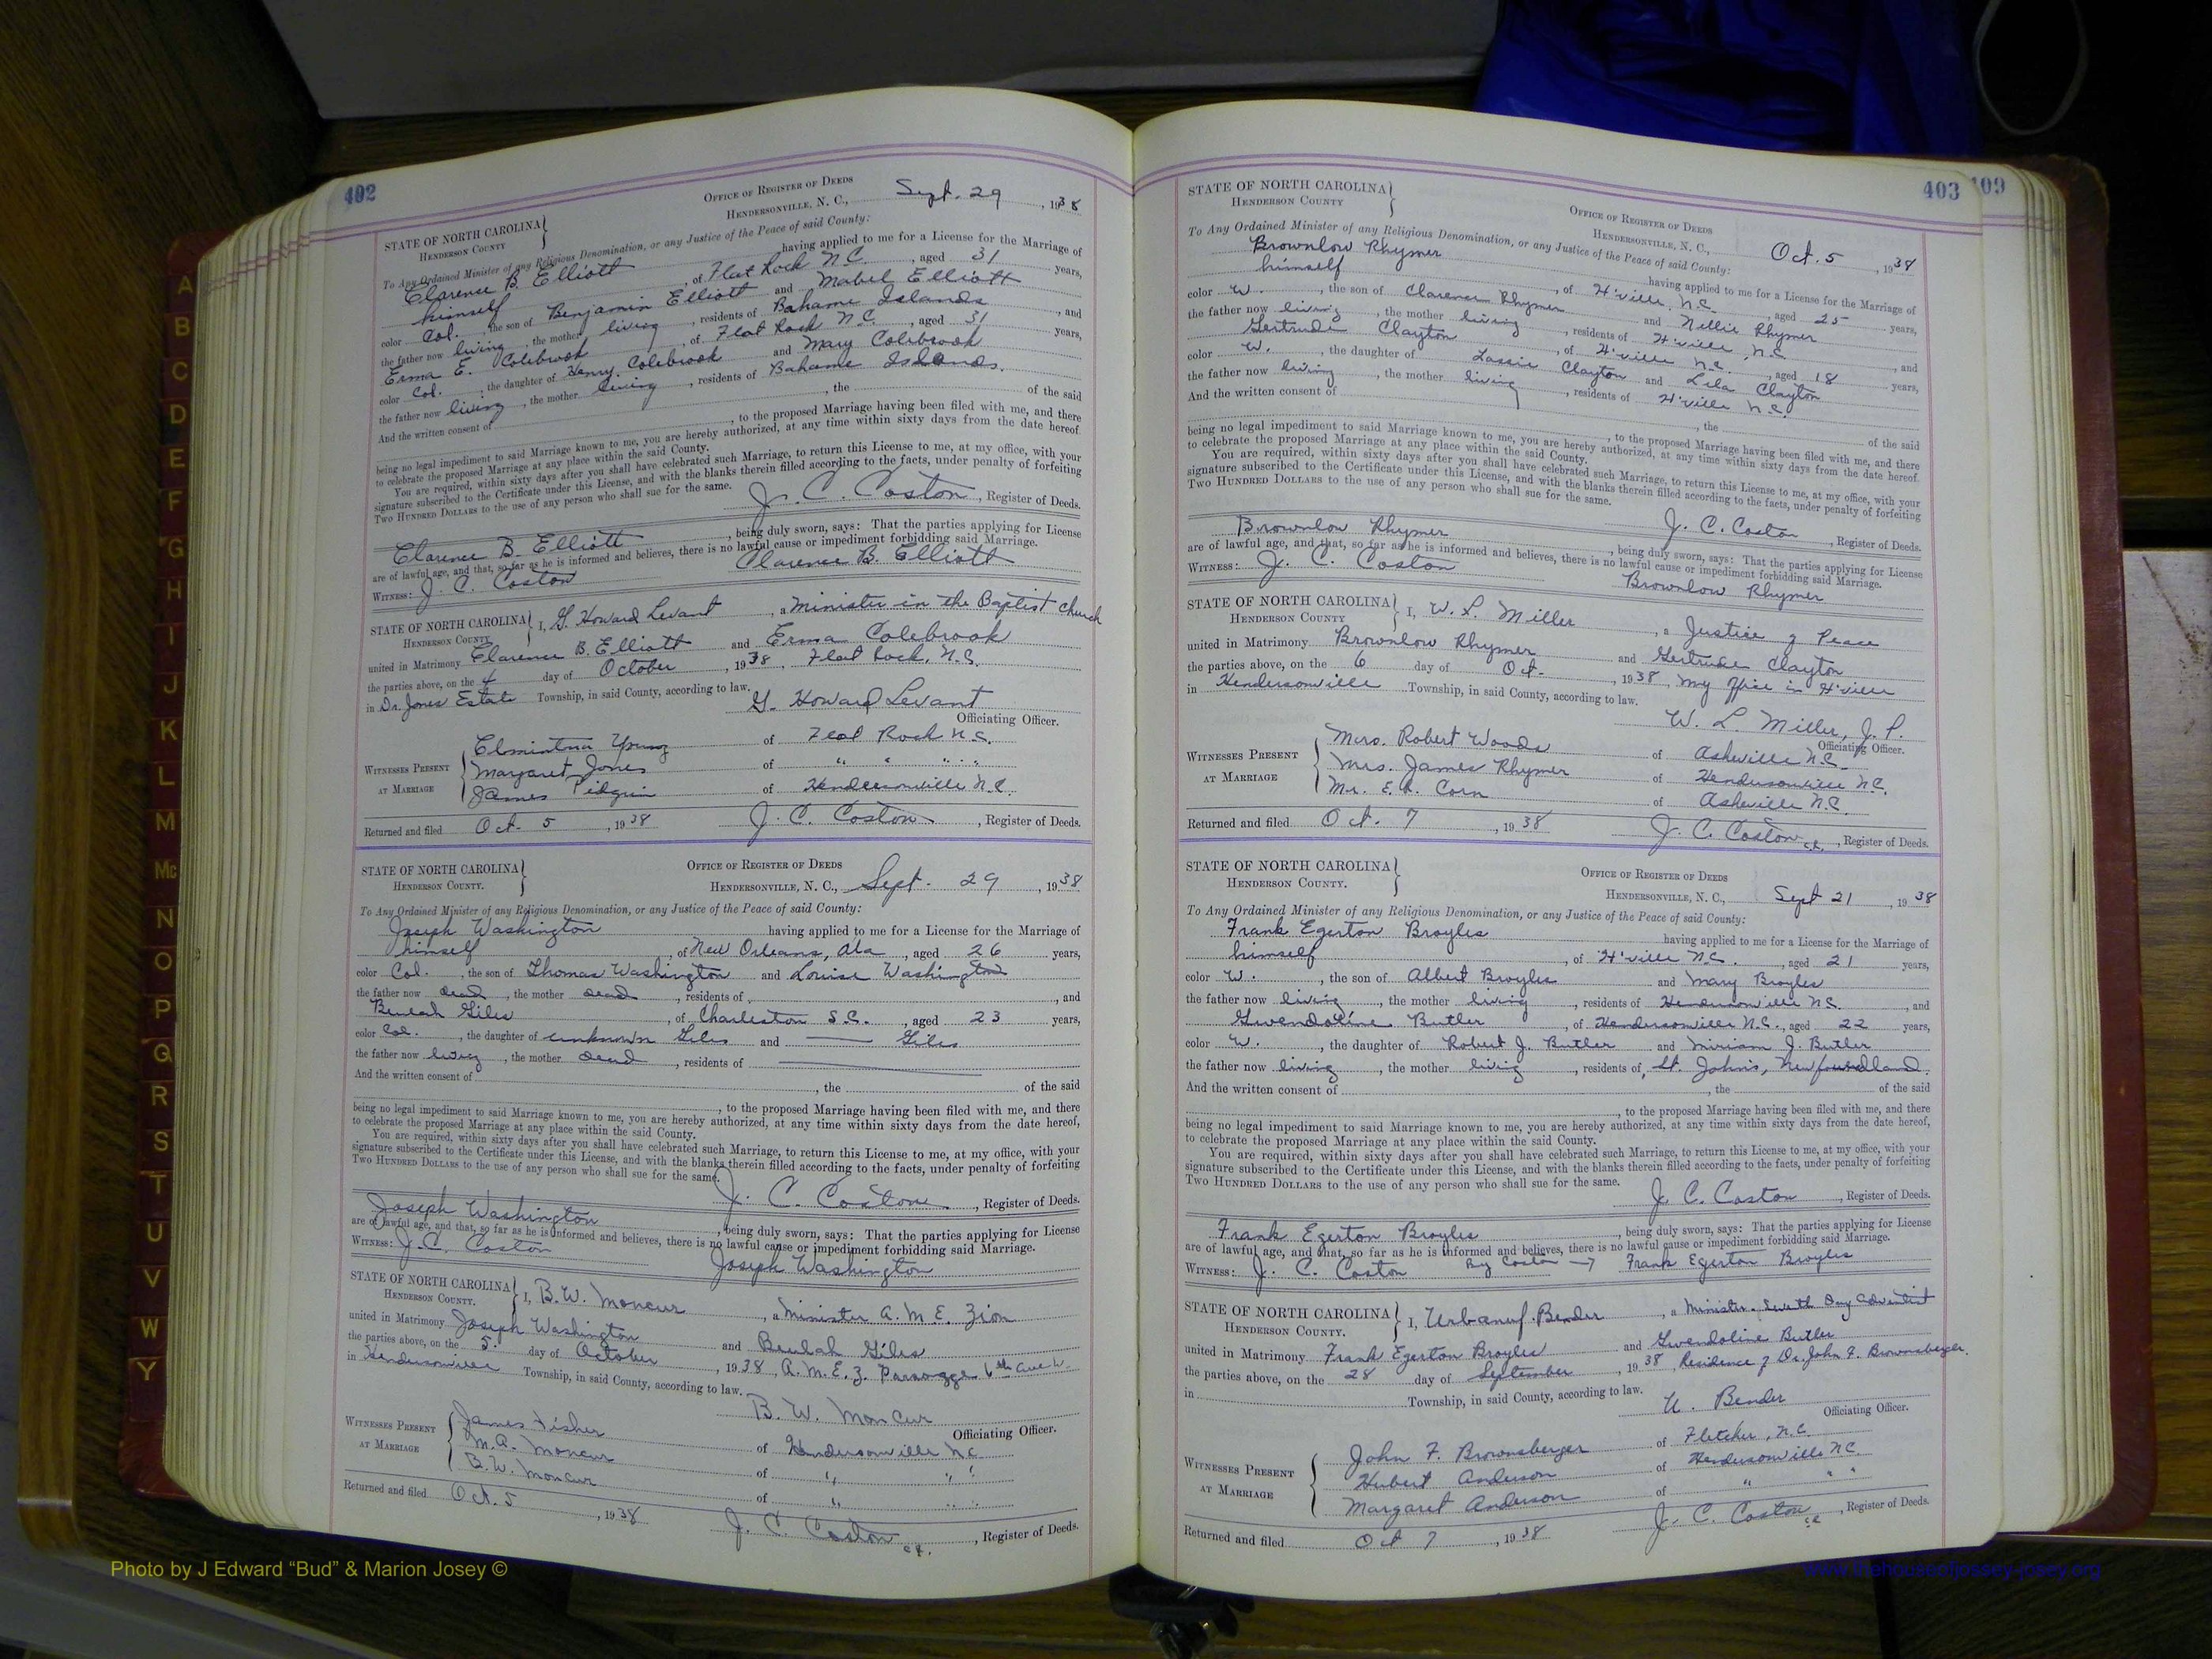 402
OFFICE OF REGISTER OF DEEDS
STATE OF NORTH CAROLINA
HENDERSON COUNTY
HENDERSONVILLE, N. C., Sept. 29, 1938
To Any Ordained Minister of any Religious Denomination, or any Justice of the Peace of said County:
Clarence B. Elliott having applied to me for a License for the Marriage of
himself, of Flat Rock N.C., aged 31 years,
color Col., the son of Benjamin Elliott and Mabel Elliott
the father now living, the mother living, residents of Bahame Islands, and
Erma E. Colebrook, of Flat Rock N.C., aged 31 years,
color Col., the daughter of Henry Colebrook and Mary Colebrook
the father now living, the mother living, residents of Bahame Islands.
And the written consent of , the of the said
, to the proposed Marriage having been filed with me, and there
being no legal impediment to said Marriage known to me, you are hereby authorized, at any time within sixty days from the date hereof
to celebrate the proposed Marriage at any place within the said County.
You are required, within sixty days after you shall have celebrated such Marriage, to return this License to me, at my office, with your
signature subscribed to the Certificate under this License, and with the blanks therein filled according to the facts, under penalty of forfeiting
TWO HUNDRED DOLLARS to the use of any person who shall sue for the same.
J. C. Coston, Register of Deeds.
Clarence B. Elliott, being duly sworn, says: That the parties applying for License
are of lawful age, and that, so far as he is informed and believes, there is no lawful cause or impediment forbidding said Marriage.
WITNESS: J. C. Coston Clarence B. Elliott
STATE OF NORTH CAROLINA
HENDERSON COUNTY
I, G. Howard Levant, a Minister in the Baptist church
united in Matrimony Clarence B. Elliott and Erma Colebrook
the parties above, on the 4 day of October, 1938, Flat Rock, N.C.
in Dr. Jones Estate Township, in said County, according to law.
G. Howard Levant
Officiating Officer.
WITNESSES PRESENT AT MARRIAGE
Young of Flat Rock N.C.
Margaret Jones of " " " "
James Pidgin of Hendersonville N.C.
Returned and filed Oct. 5, 1938 J. C. Coston, Register of Deeds.
STATE OF NORTH CAROLINA
HENDERSON COUNTY.
OFFICE OF REGISTER OF DEEDS
HENDERSONVILLE, N. C., Sept. 29, 1938
To Any Ordained Minister of any Religious Denomination, or any Justice of the Peace of said County:
Joseph Washington having applied to me for a License for the Marriage of
himself, of New Orleans, Ala, aged 26 years,
color Col., the son of Thomas Washington and Louise Washington
the father now dead, the mother dead, residents of , and
Beulah Giles, of Charleston S.C., aged 23 years,
color Col., the daughter of unknown Giles and — Giles
the father now living, the mother dead, residents of
And the written consent of , the of the said
, to the proposed Marriage having been filed with me, and there
being no legal impediment to said Marriage known to me, you are hereby authorized, at any time within sixty days from the date hereof,
to celebrate the proposed Marriage at any place within the said County.
You are required, within sixty days after you shall have celebrated such Marriage, to return this License to me, at my office, with your
signature subscribed to the Certificate under this License, and with the blanks therein filled according to the facts, under penalty of forfeiting
TWO HUNDRED DOLLARS to the use of any person who shall sue for the same.
J. C. Coston, Register of Deeds.
Joseph Washington, being duly sworn, says: That the parties applying for License
are of lawful age, and that, so far as he is informed and believes, there is no lawful cause or impediment forbidding said Marriage.
WITNESS: J. C. Coston Joseph Washington
STATE OF NORTH CAROLINA
HENDERSON COUNTY.
I, B. W. Moncur, a Minister A. M. E. Zion
united in Matrimony Joseph Washington and Beulah Giles
the parties above, on the 5 day of October, 1938, A. M. E. Z. Parsogge 6th Ave W.
in Hendersonville Township, in said County, according to law.
B. W. Moncur
Officiating Officer.
WITNESSES PRESENT AT MARRIAGE
James Fisher of Hendersonville NC
M. A. Moncur of " " "
B. W. Moncur of " " "
Returned and filed Oct. 5, 1938 J. C. Coston, Register of Deeds.
403
409
STATE OF NORTH CAROLINA
HENDERSON COUNTY
OFFICE OF REGISTER OF DEEDS
HENDERSONVILLE, N. C., Oct. 5, 1938
To Any Ordained Minister of any Religious Denomination, or any Justice of the Peace of said County:
Brownlow Rhymer having applied to me for a License for the Marriage of
himself, of H'ville N.C., aged 25 years,
color W., the son of Clarence Rhymer and Nellie Rhymer
the father now living, the mother living, residents of H'ville, N.C., and
Gertrude Clayton, of H'ville N.C., aged 18 years,
color W., the daughter of Lassie Clayton and Lila Clayton
the father now living, the mother living, residents of H'ville N.C.
And the written consent of , the of the said
, to the proposed Marriage having been filed with me, and there
being no legal impediment to said Marriage known to me, you are hereby authorized, at any time within sixty days from the date hereof.
to celebrate the proposed Marriage at any place within the said County.
You are required, within sixty days after you shall have celebrated such Marriage, to return this License to me, at my office, with your
signature subscribed to the Certificate under this License, and with the blanks therein filled according to the facts, under penalty of forfeiting
TWO HUNDRED DOLLARS to the use of any person who shall sue for the same.
J. C. Coston, Register of Deeds.
Brownlow Rhymer, being duly sworn, says: That the parties applying for License
are of lawful age, and that, so far as he is informed and believes, there is no lawful cause or impediment forbidding said Marriage.
WITNESS: J. C. Coston Brownlow Rhymer
STATE OF NORTH CAROLINA
HENDERSON COUNTY
I, W. L. Miller, a Justice of Peace
united in Matrimony Brownlow Rhymer and Gertrude Clayton
the parties above, on the 6 day of Oct., 1938, My Office in H'ville
in Hendersonville Township, in said County, according to law.
W. L. Miller, J. P.
Officiating Officer.
WITNESSES PRESENT AT MARRIAGE
Mrs. Robert Woods of Asheville N.C.
Mrs. James Rhymer of Hendersonville N.C.
Mr. E. A. Corn of Asheville N.C.
Returned and filed Oct. 7, 1938 J. C. Coston, Register of Deeds.
STATE OF NORTH CAROLINA
HENDERSON COUNTY.
OFFICE OF REGISTER OF DEEDS
HENDERSONVILLE, N. C., Sept 21, 1938
To Any Ordained Minister of any Religious Denomination, or any Justice of the Peace of said County:
Frank Egerton Broyles having applied to me for a License for the Marriage of
himself, of H'ville N.C., aged 21 years,
color W., the son of Albert Broyles and Mary Broyles
the father now living, the mother living, residents of Hendersonville N.C., and
Gwendoline Butler, of Hendersonville N.C., aged 22 years,
color W., the daughter of Robert J. Butler and Miriam J. Butler
the father now living, the mother living, residents of, St. John's, Newfoundland.
And the written consent of , the of the said
, to the proposed Marriage having been filed with me, and there
being no legal impediment to said Marriage known to me, you are hereby authorized, at any time within sixty days from the date hereof,
to celebrate the proposed Marriage at any place within the said County.
You are required, within sixty days after you shall have celebrated such Marriage, to return this License to me, at my office, with your
signature subscribed to the Certificate under this License, and with the blanks therein filled according to the facts, under penalty of forfeiting
TWO HUNDRED DOLLARS to the use of any person who shall sue for the same.
J. C. Coston, Register of Deeds.
Frank Egerton Broyles, being duly sworn, says: That the parties applying for License
are of lawful age, and that, so far as he is informed and believes, there is no lawful cause or impediment forbidding said Marriage.
WITNESS: J. C. Coston By Coston → Frank Egerton Broyles
STATE OF NORTH CAROLINA
HENDERSON COUNTY.
I, Bender, a Minister - Day Adventist
united in Matrimony Frank Egerton Broyles and Gwendoline Butler
the parties above, on the 28 day of September, 1938, Residence of Dr. John F. Brownsberger.
in Township, in said County, according to law.
U. Bender
Officiating Officer.
WITNESSES PRESENT AT MARRIAGE
John F. Brownsberger of Fletcher, N.C.
Hubert Anderson of Hendersonville N.C.
Margaret Anderson of " " "
Returned and filed Oct 7, 1938 J. C. Coston, Register of Deeds.
A
B
C
D
E
F
G
H
I
J
K
L
M
Mc
N
O
P
Q
R
S
T
U
V
W
Y
Photo by J Edward “Bud” & Marion Josey ©
www.thehouseofjossey-josey.org